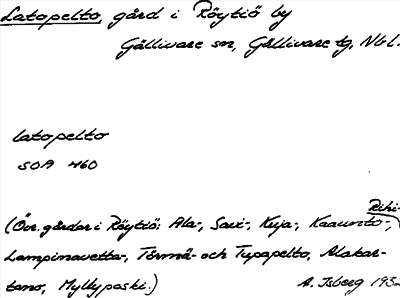 Latopelto, gård i Röytiö by
Gällivare sn, Gällivare tg, Nbl.
latopelto
SOA 460
Riihi-
(Övr. gårdar i Röytiö: Ala-, Savi-, Kuja-, Kaaunto-,
Lampinavetta-, Törmä- och Tupapelto, Alakar-
tano, Myllypaski.)
A. Isberg 1932